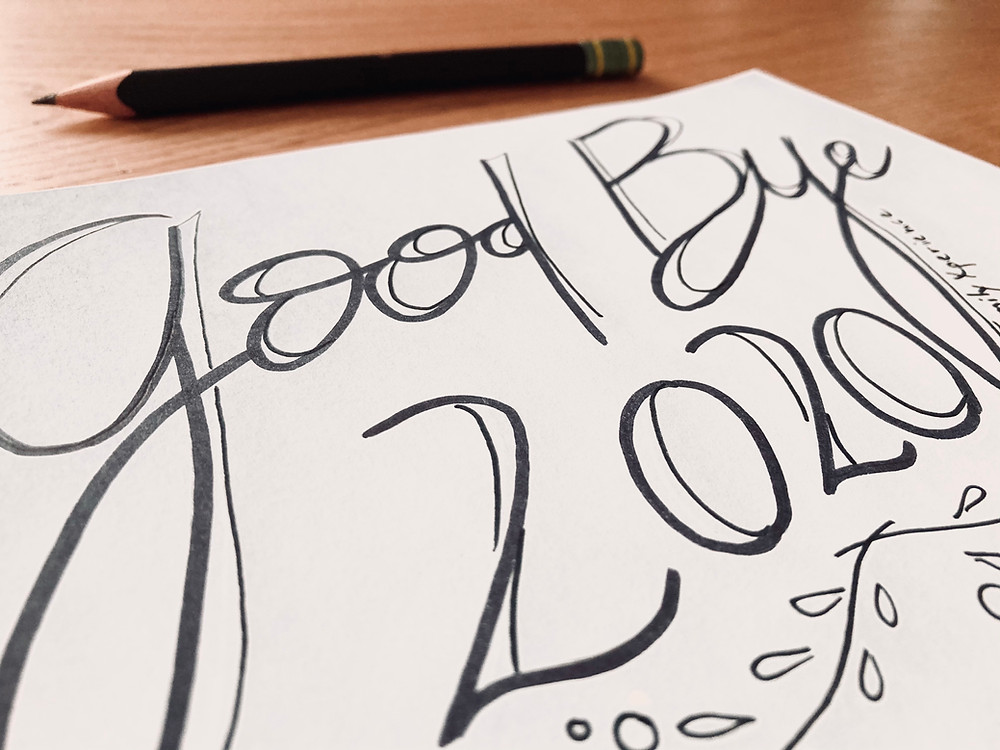 good Bye
2020